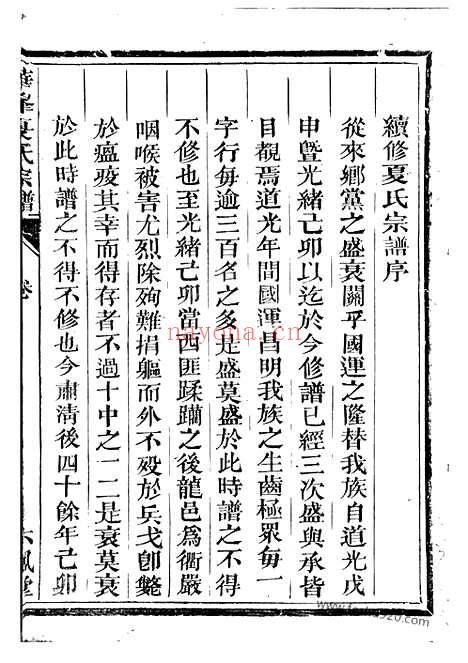 續修夏氏宗譜序
從來鄉黨之盛衰關乎國運之隆替我族自道光戊
申暨光緒己卯以迄於今修譜已經三次盛與承皆
目覩焉道光年間國運昌明我族之生齒極眾每一
字行每逾三百名之多是盛莫盛於此時譜之不得
不修也至光緒己卯當西匪蹂躪之後龍邑為衢嚴
咽喉被害尤烈除殉難捐軀而外不歿於兵戈卽斃
於瘟疫其幸而得存者不過十中之一二是衰莫衰
於此時譜之不得不修也今肅淸後四十餘年己卯
夏氏宗譜
卷
nayona.cn